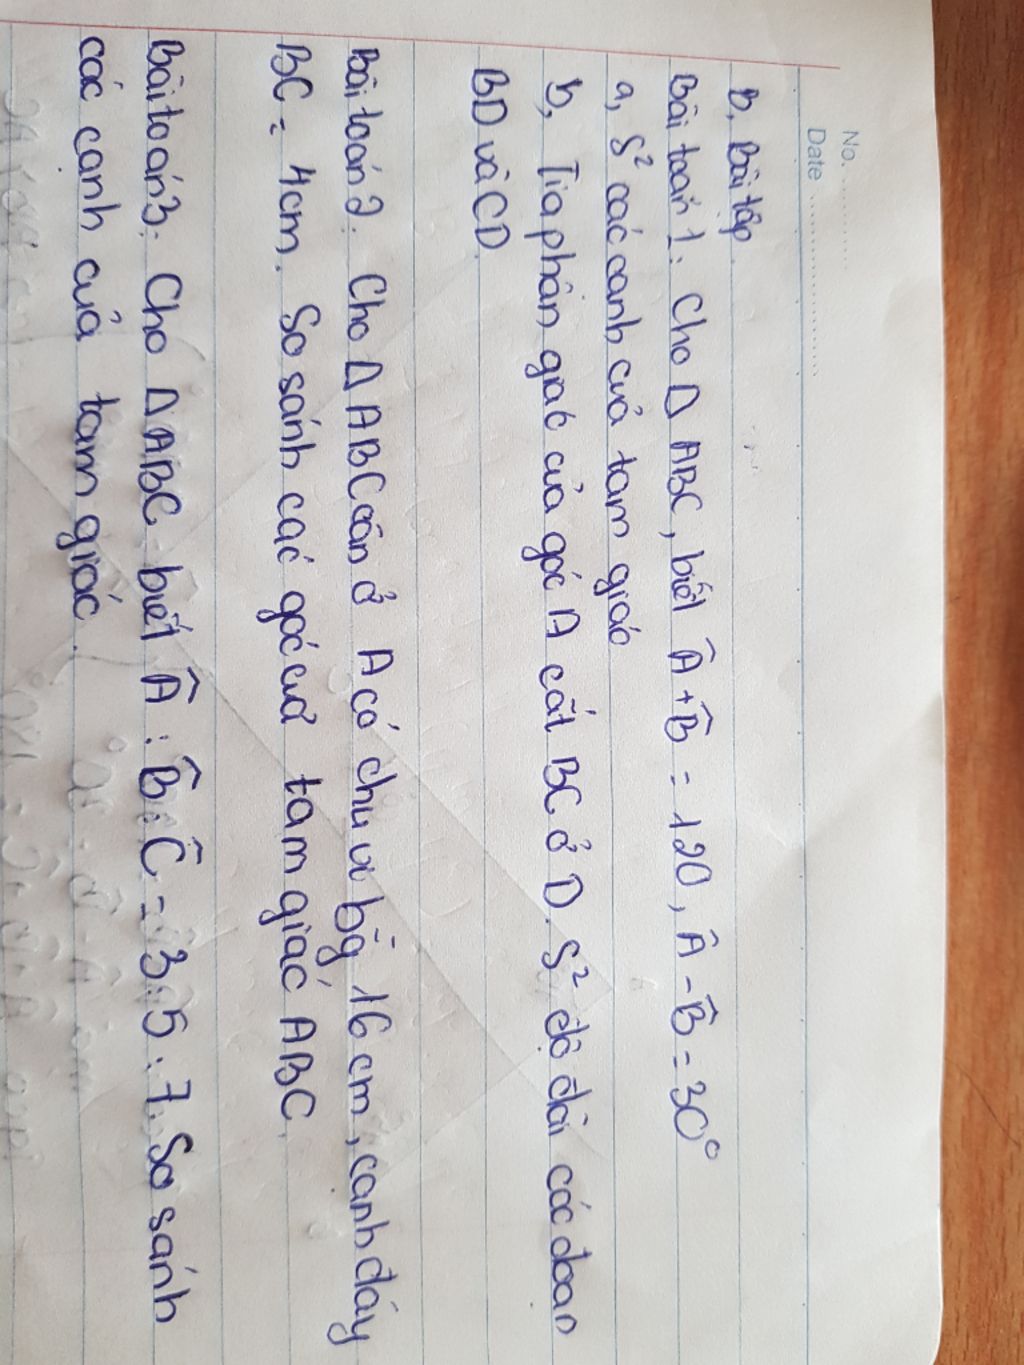 No. ............
Date ......................
B, Bài tập.
Bài toán 1. Cho Δ ABC, biết Â + B̂ = 120, Â - B̂ = 30°
a, S² các cạnh của tam giác
b, Tia phân giác của góc A cắt BC ở D. S² độ dài các đoạn
BD và CD.
Bài toán 2. Cho Δ ABC cân ở A có chu vi bg̃ 16 cm, cạnh đáy
BC = 4cm. So sánh các góc của tam giác ABC.
Bài toán 3: Cho Δ ABC biết Â : B̂ : Ĉ = 3 : 5 : 7. So sánh
các cạnh của tam giác.